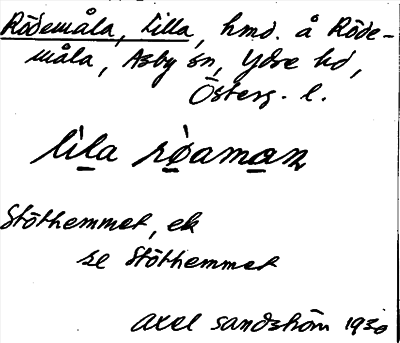 Rödemåla, Lilla, hmd. å Röde-
måla, Asby sn, Ydre hd,
Österg. l.
lila røaman
Stöthemmet, ek
se Stöthemmet
Axel Sandström 1930